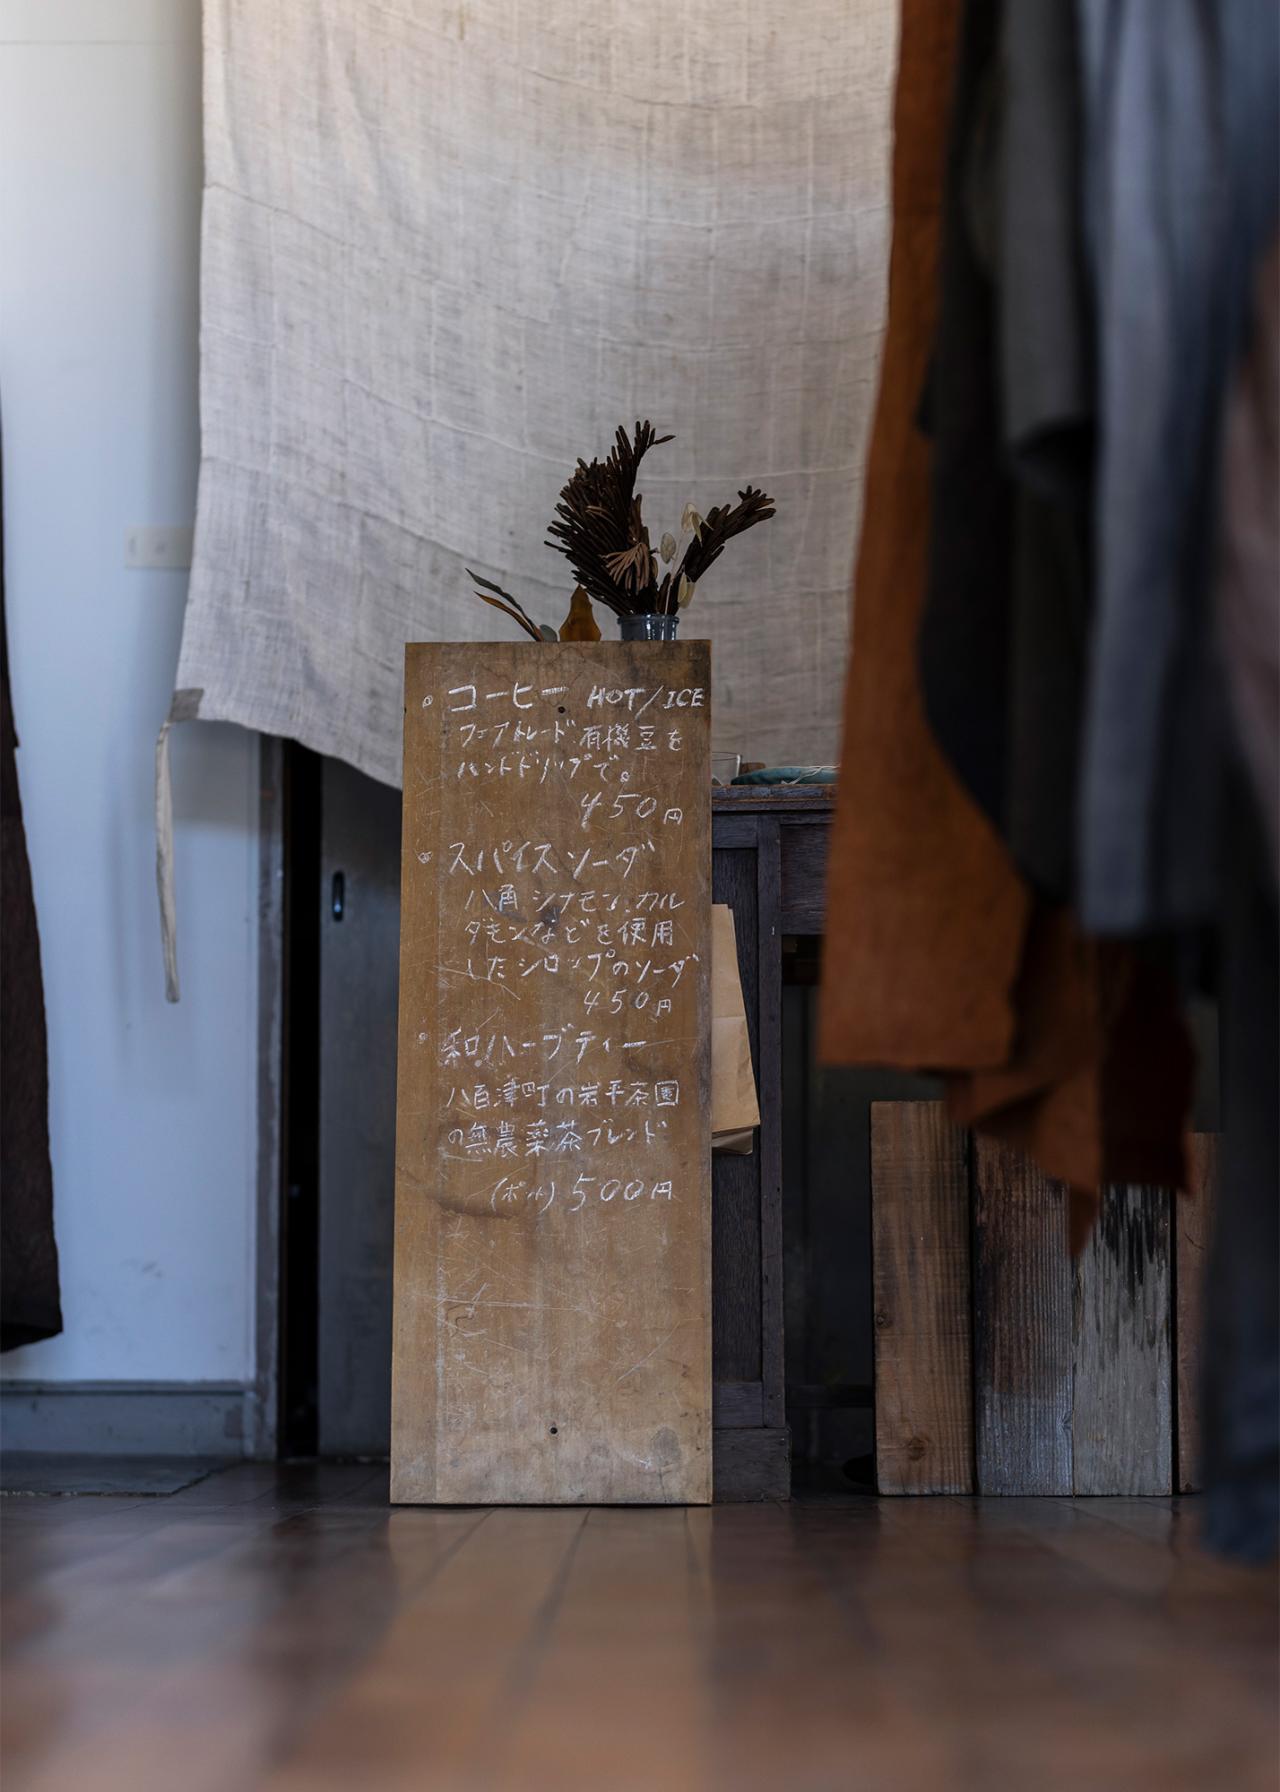 コーヒー HOT/ICE
フェアトレード有機豆を
ハンドドリップで。
450円
スパイスソーダ
八角 シナモン.カル
ダモンなどを使用
したシロップのソーダ
450円
和ハーブティー
八百津町の岩平茶園
の無農薬茶ブレンド
(ポット)500円